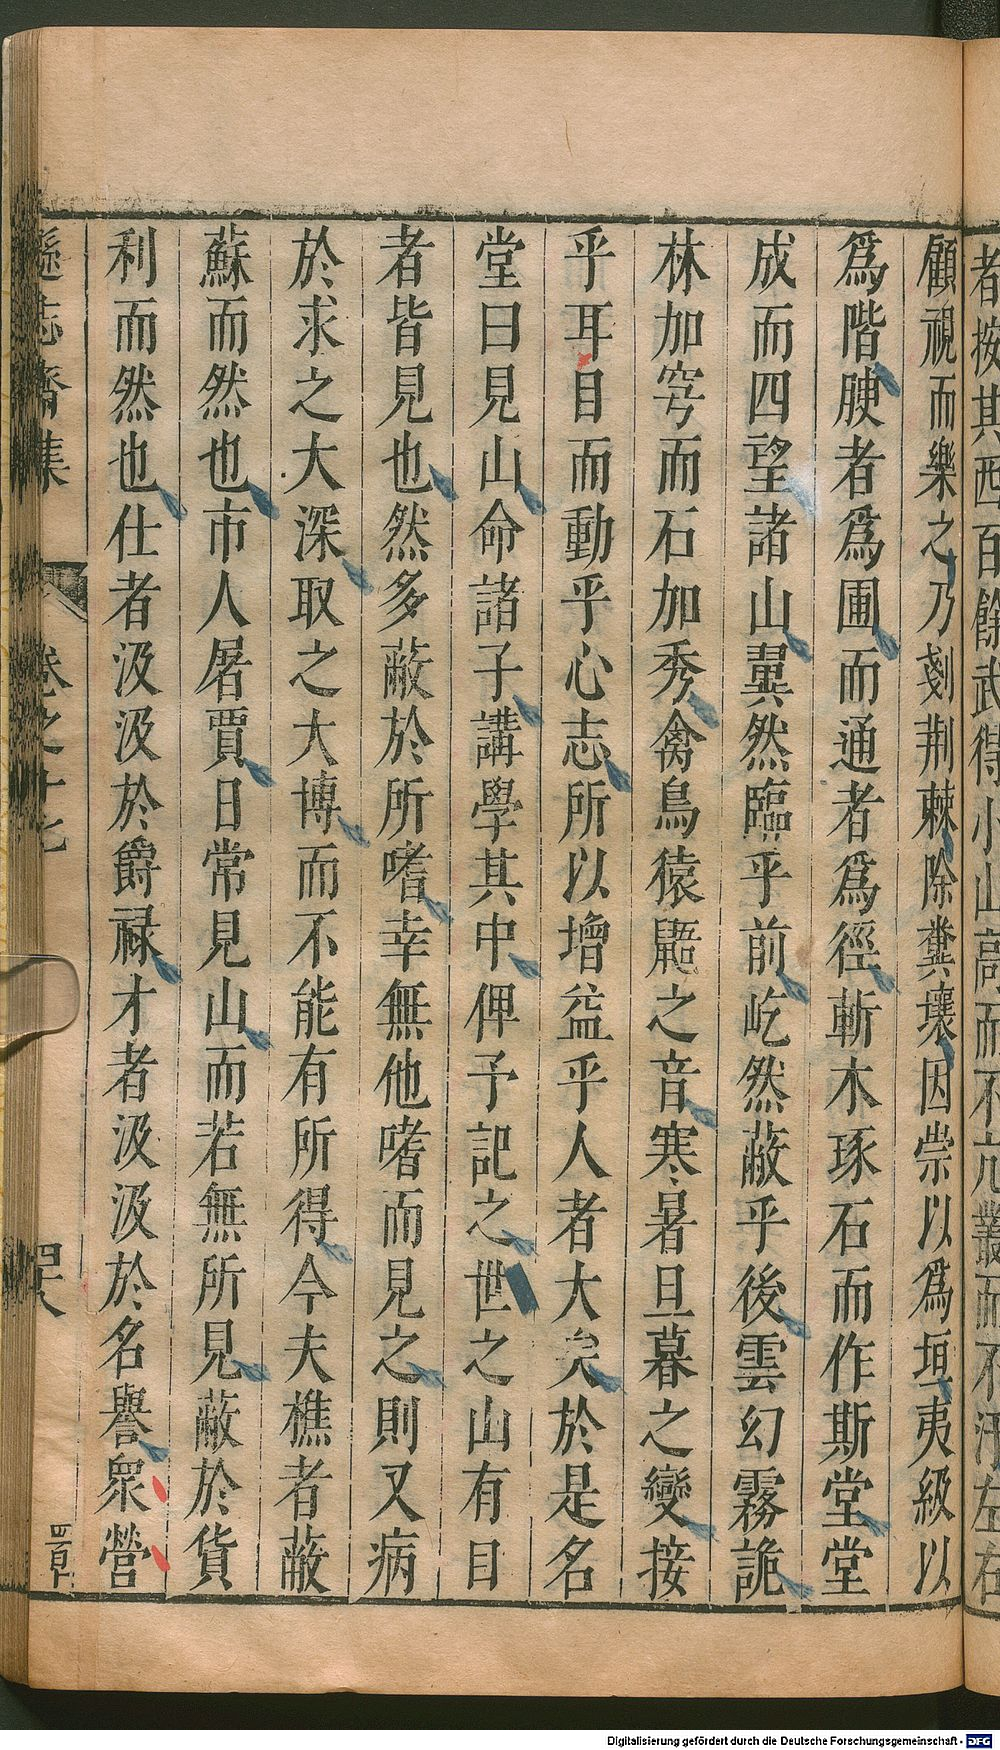 者按其西百餘武得小山高而不亢叢而不汙左右
顧視而樂之乃剗荆棘除糞壤因崇以爲垣夷級以
爲階腴者爲圃而通者爲徑斬木琢石而作斯堂堂
成而四望諸山翼然臨乎前屹然蔽乎後雲幻霧詭
林加窔而石加秀禽鳥猿鼯之音寒暑旦暮之變接
乎耳目而動乎心志所以增益乎人者大矣於是名
堂曰見山命諸子講學其中俾予記之世之山有目
者皆見也然多蔽於所嗜幸無他嗜而見之則又病
於求之大深取之大博而不能有所得今夫樵者蔽
蘇而然也市人屠賈日常見山而若無所見蔽於貨
利而然也仕者汲汲於爵祿才者汲汲於名譽衆營
遜志齋集
卷之十七
四十八
Digitalisierung gefördert durch die Deutsche Forschungsgemeinschaft - DFG